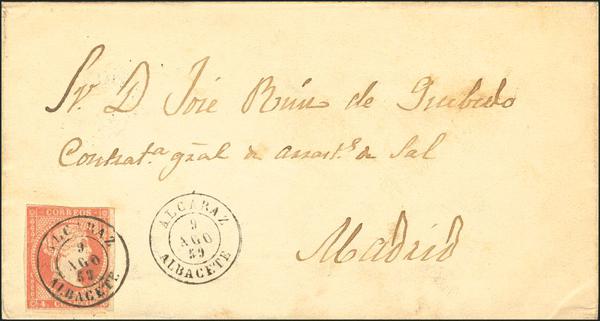 Sr. D José Ruiz de Quibedo
Contrat.a gral de arrast.s de Sal
Madrid
CORREOS
ALCARAZ
9
AGO
59
ALBACETE
ALCARAZ
9
AGO
59
ALBACETE